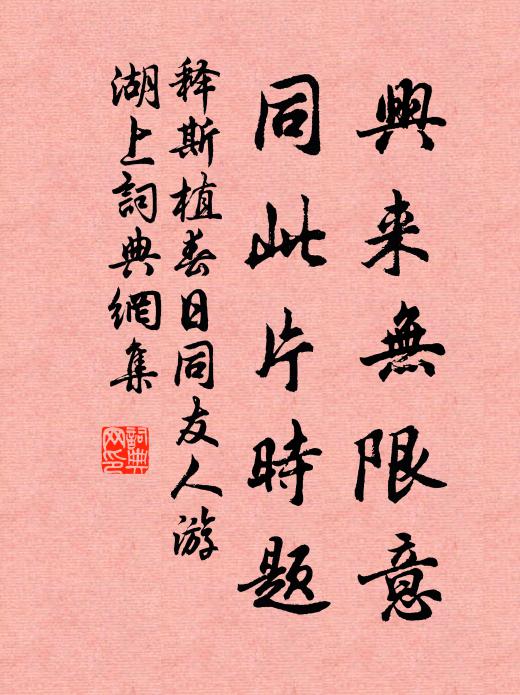 興来無限意
同此片時題
释斯植春日同友人游
湖上詞典網集
詞典网印